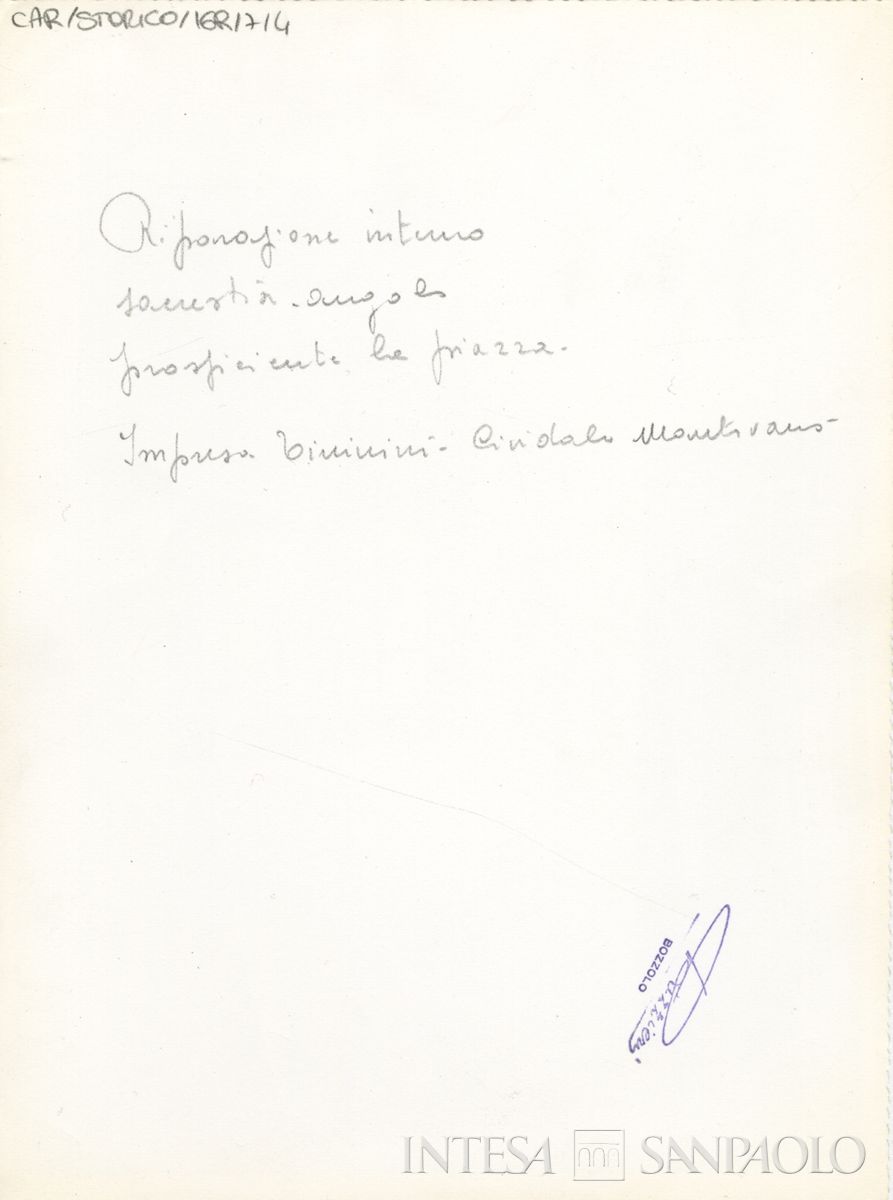 CAR/STORICO/IGR/7/4
Riparazione interno
sacrestia - angolo
prospiciente la piazza -
Impresa - Cividale Mantovano -
BOZZOLO
INTESA SANPAOLO